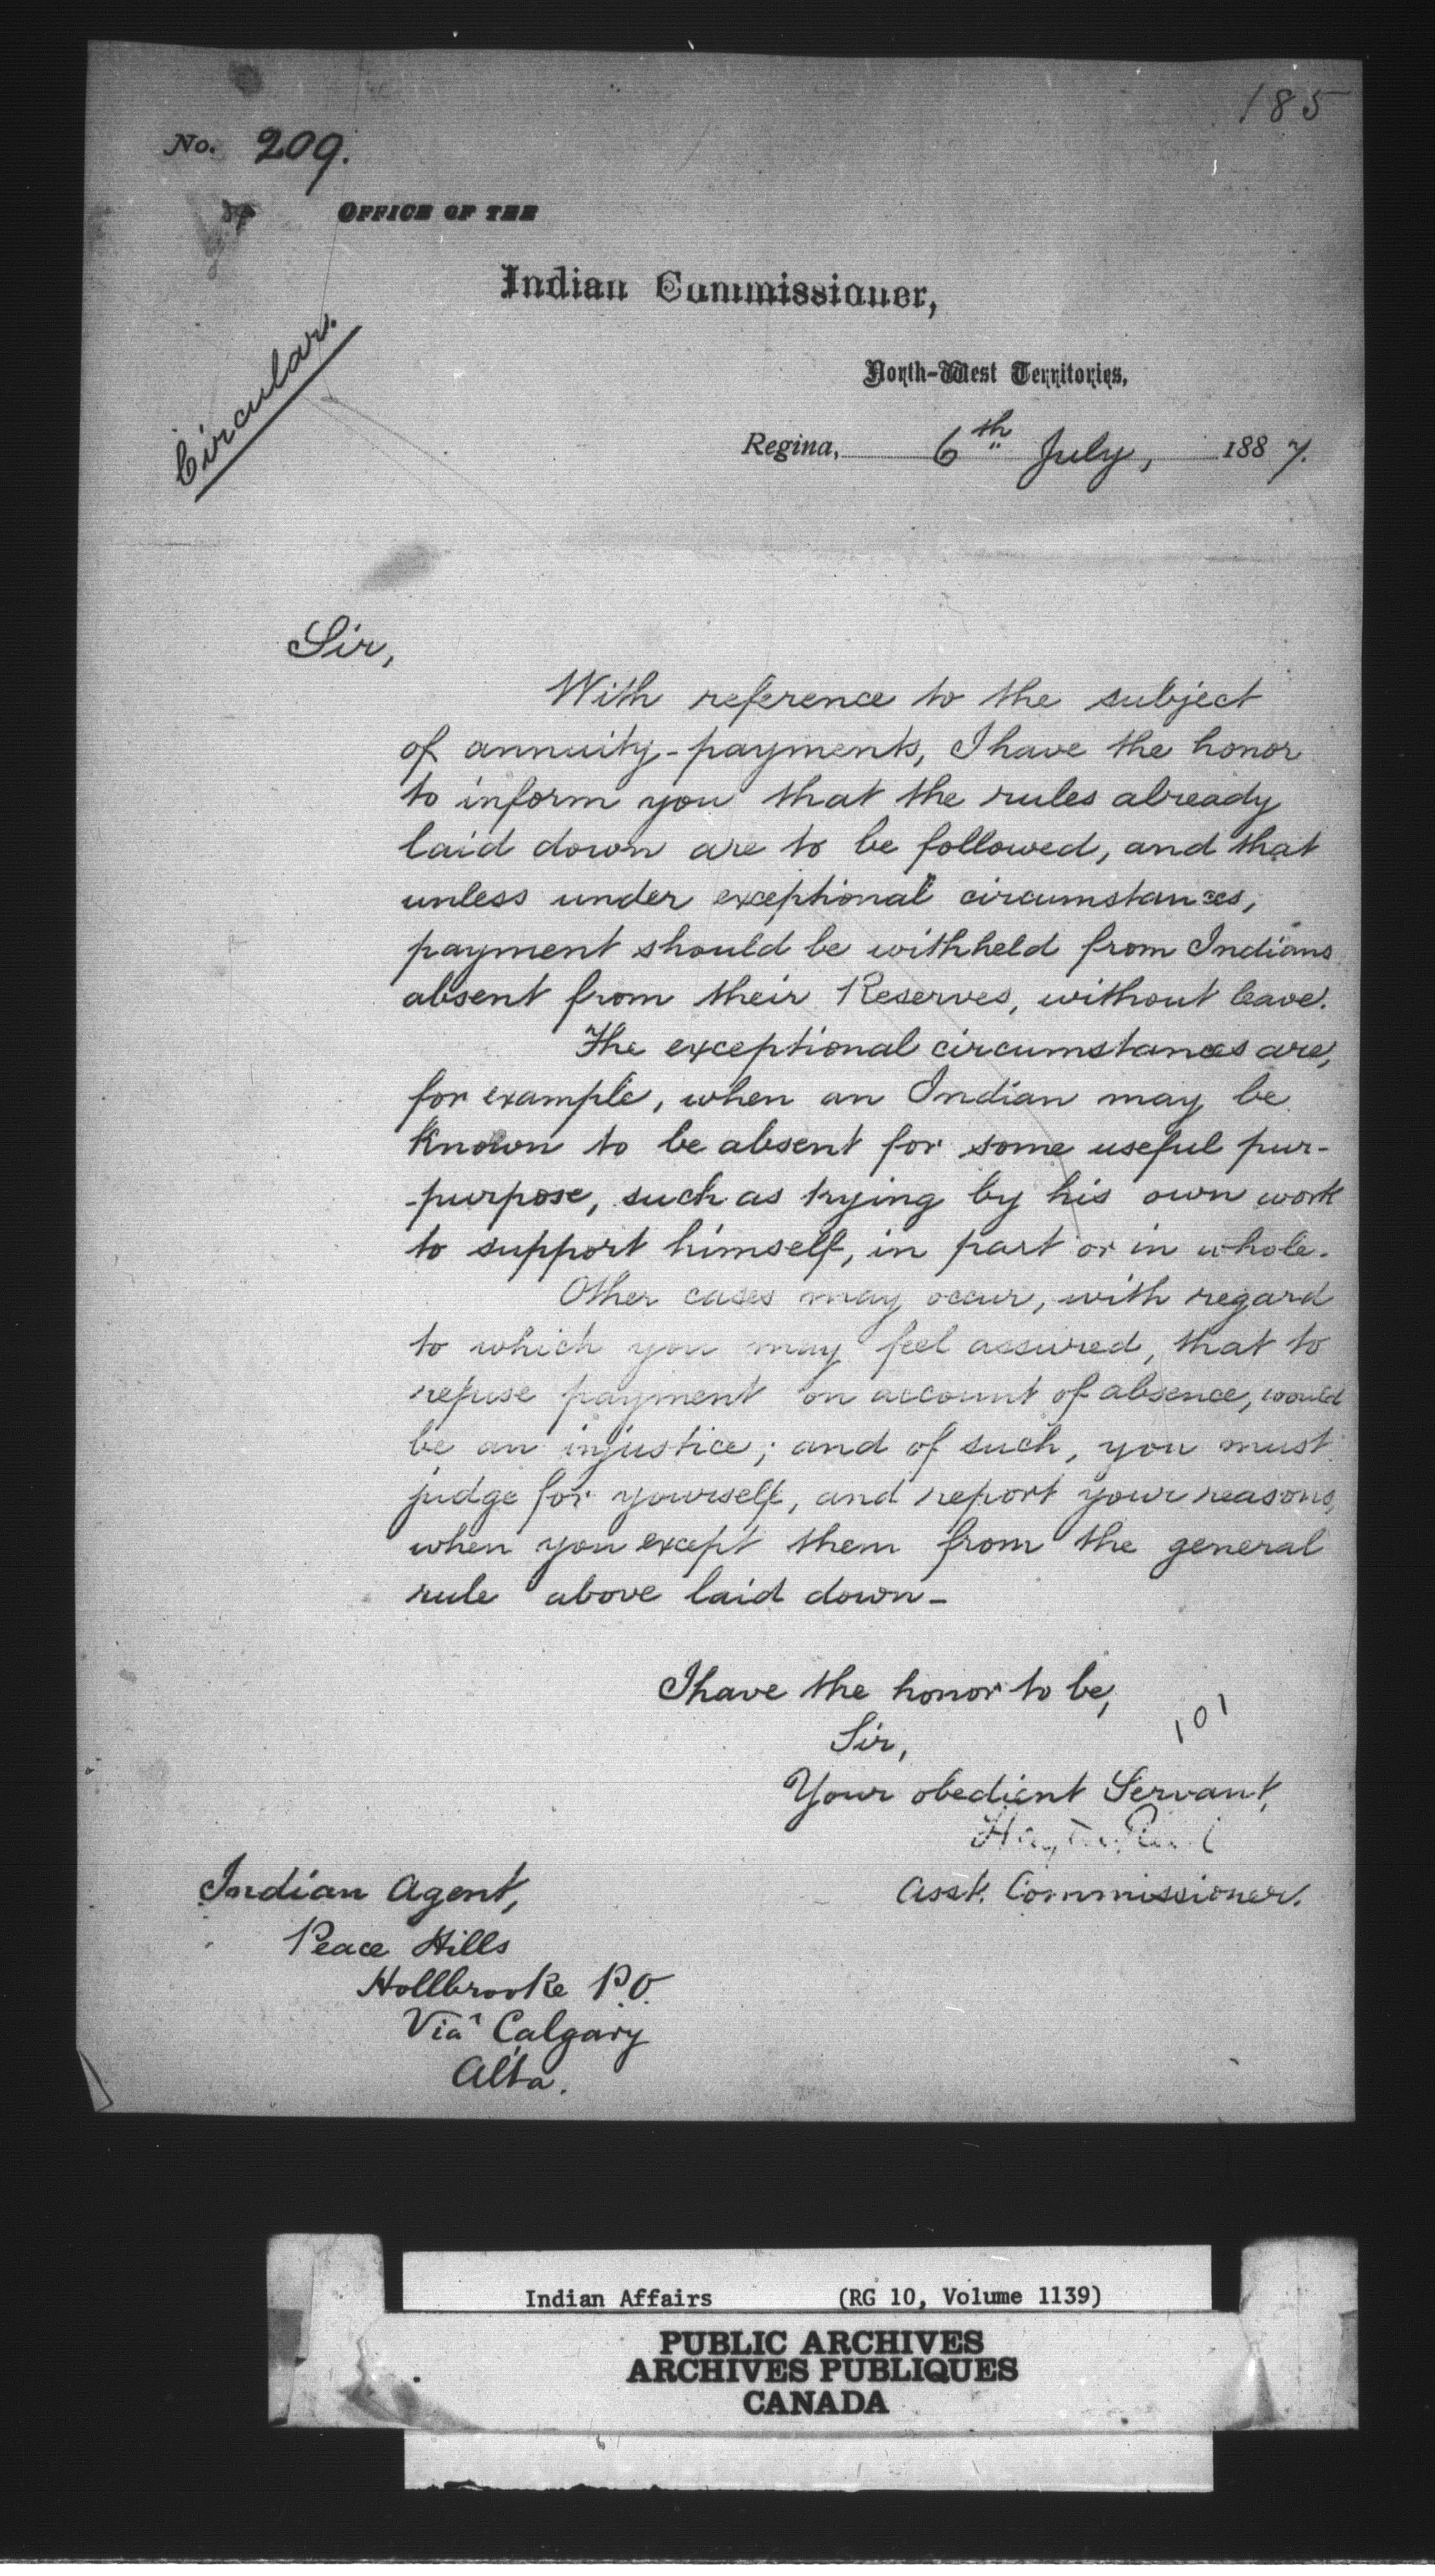 185
No. 209.
OFFICE OF THE
Indian Commissioner,
North-West Territories,
Circular.
Regina, 6th July, 1887.
Sir,
With reference to the subject
of annuity-payments, I have the honor
to inform you that the rules already
laid down are to be followed, and that
unless under exceptional circumstances,
payment should be withheld from Indians
absent from their Reserves, without leave.
The exceptional circumstances are,
for example, when an Indian may be
known to be absent for some useful pur-
-purpose, such as trying by his own work
to support himself, in part or in whole.
Other cases may occur, with regard
to which you may feel assured, that to
refuse payment on account of absence, would
be an injustice; and of such, you must
judge for yourself, and report your reasons,
when you except them from the general
rule above laid down-
I have the honor to be,
Sir,
101
Your obedient Servant,
Asst. Commissioner.
Indian Agent,
Peace Hills
Hollbrooke P.O.
Via Calgary
Alta.
Indian Affairs (RG 10, Volume 1139)
PUBLIC ARCHIVES
ARCHIVES PUBLIQUES
CANADA